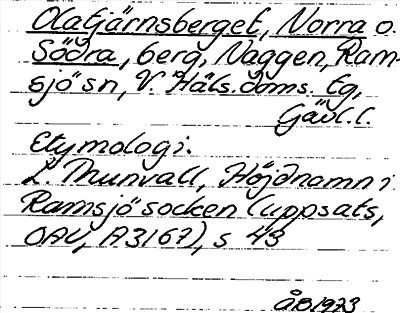 Olatjärnsberget, Norra o.
Södra, berg, Naggen, Ram-
sjö sn, V. Häls. doms. tg,
Gävl. l.
Etymologi.
L. Munvall, Höjdnamn i
Ramsjö socken (uppsats,
OAU, A3167), s 43
ÅB 1973